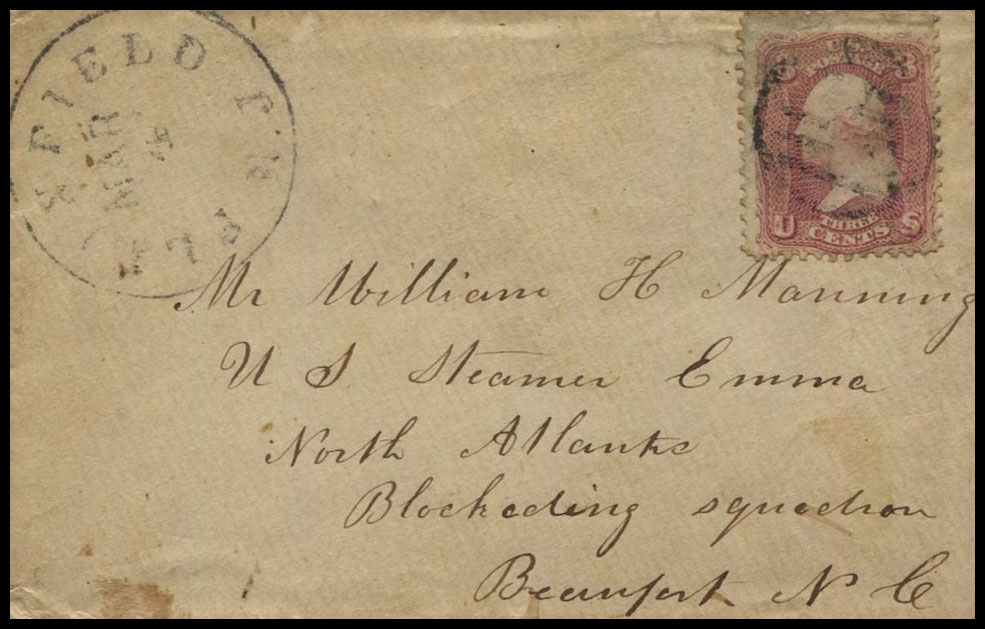 MAR
U.S.
POSTAGE
3 3
THREE
U CENTS S
Mr William H Manning
U S Steamer Emma
North Atlantic
Blockading squadron
Beaufort N C